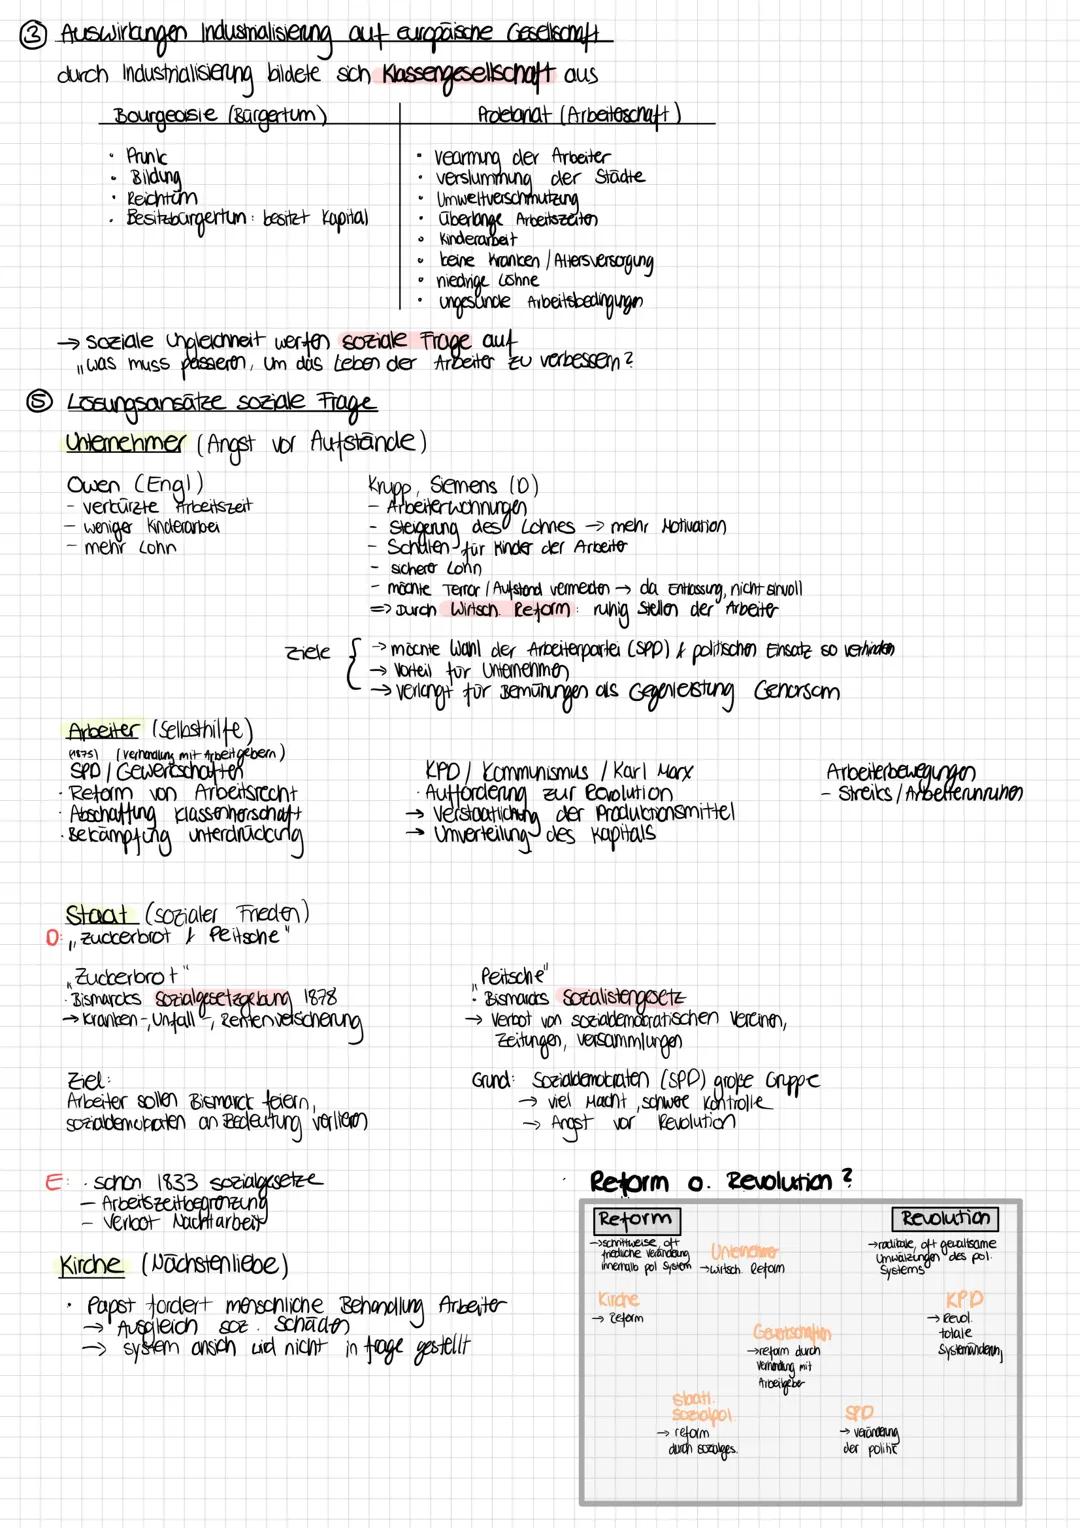 ③ Auswirkungen Industrialisierung auf europäische Gesellschaft
durch Industrialisierung bildete sich Klassengesellschaft aus
Bourgeoisie (Bürgertum)
• Prunk
• Bildung
• Reichtum
• Besitzbürgertum: besitzt Kapital
Proletariat (Arbeiterschaft)
• Verarmung der Arbeiter
• Verslummung der Städte
• Umweltverschmutzung
• überlange Arbeitszeiten
• Kinderarbeit
• keine Kranken / Altersversorgung
• niedrige Löhne
• ungesunde Arbeitsbedingungen
→ soziale Ungleichheit werfen soziale Frage auf
„was muss passieren, um das Leben der Arbeiter zu verbessern?
⑤ Lösungsansätze soziale Frage
Unternehmer (Angst vor Aufstände)
Owen (Engl)
- verkürzte Arbeitszeit
- weniger Kinderarbei
- mehr Lohn
Krupp, Siemens (D)
- Arbeiterwohnungen
- Steigerung des Lohnes → mehr Motivation
- Schulen für Kinder der Arbeiter
- sicherer Lohn
- möchte Terror / Aufstand vermeiden → da Entlassung, nicht sinvoll
=> Durch Wirtsch. Reform: ruhig Stellen der Arbeiter
Ziele { → möchte Wahl der Arbeiterpartei (SPD) & politischen Einsatz so verhindern
→ Vorteil für Unternehmen
→ verlangt für Bemühungen als Gegenleistung Gehorsam
Arbeiter (Selbsthilfe)
(1875) (Verhandlung mit Arbeitgebern)
SPD / Gewerkschaften
· Reform von Arbeitsrecht
· Abschaffung Klassenherrschaft
· Bekämpfung Unterdrückung
KPD / Kommunismus / Karl Marx
· Aufforderung zur Revolution
→ Verstaatlichung der Produktionsmittel
→ Umverteilung des Kapitals
Arbeiterbewegungen
- Streiks / Arbeiterunruhen
Staat (sozialer Frieden)
D: „Zuckerbrot & Peitsche"
„Zuckerbrot"
· Bismarcks Sozialgesetzgebung 1878
→ Kranken-, Unfall-, Rentenversicherung
Ziel:
Arbeiter sollen Bismarck feiern,
sozialdemokraten an Bedeutung verlieren
„Peitsche"
· Bismarcks Sozialistengesetz
→ Verbot von sozialdemokratischen Vereinen,
Zeitungen, Versammlungen
Grund: Sozialdemokraten (SPD) große Gruppe
→ viel Macht, schwere Kontrolle
→ Angst vor Revolution
E: · schon 1833 sozialgesetze
- Arbeitszeitbegrenzung
- Verbot Nachtarbeit
Kirche (Nächstenliebe)
• Papst fordert menschliche Behandlung Arbeiter
→ Ausgleich soz. Schäden
→ System ansich wird nicht in frage gestellt
Reform o. Revolution?
Reform
→ schrittweise, oft
friedliche Veränderung
innerhalb pol System
Unternehmer
→ wirtsch. Reform
Revolution
→ radikale, oft gewaltsame
Umwälzungen des pol.
Systems
Kirche
→ Reform
KPD
→ Revol.
totale
Systemändern,
Gewerkschaften
→ reform durch
Verhandlung mit
Arbeitgeber
Staatl.
Sozialpol.
→ reform
durch sozialges.
SPD
→ veränderung
der politik